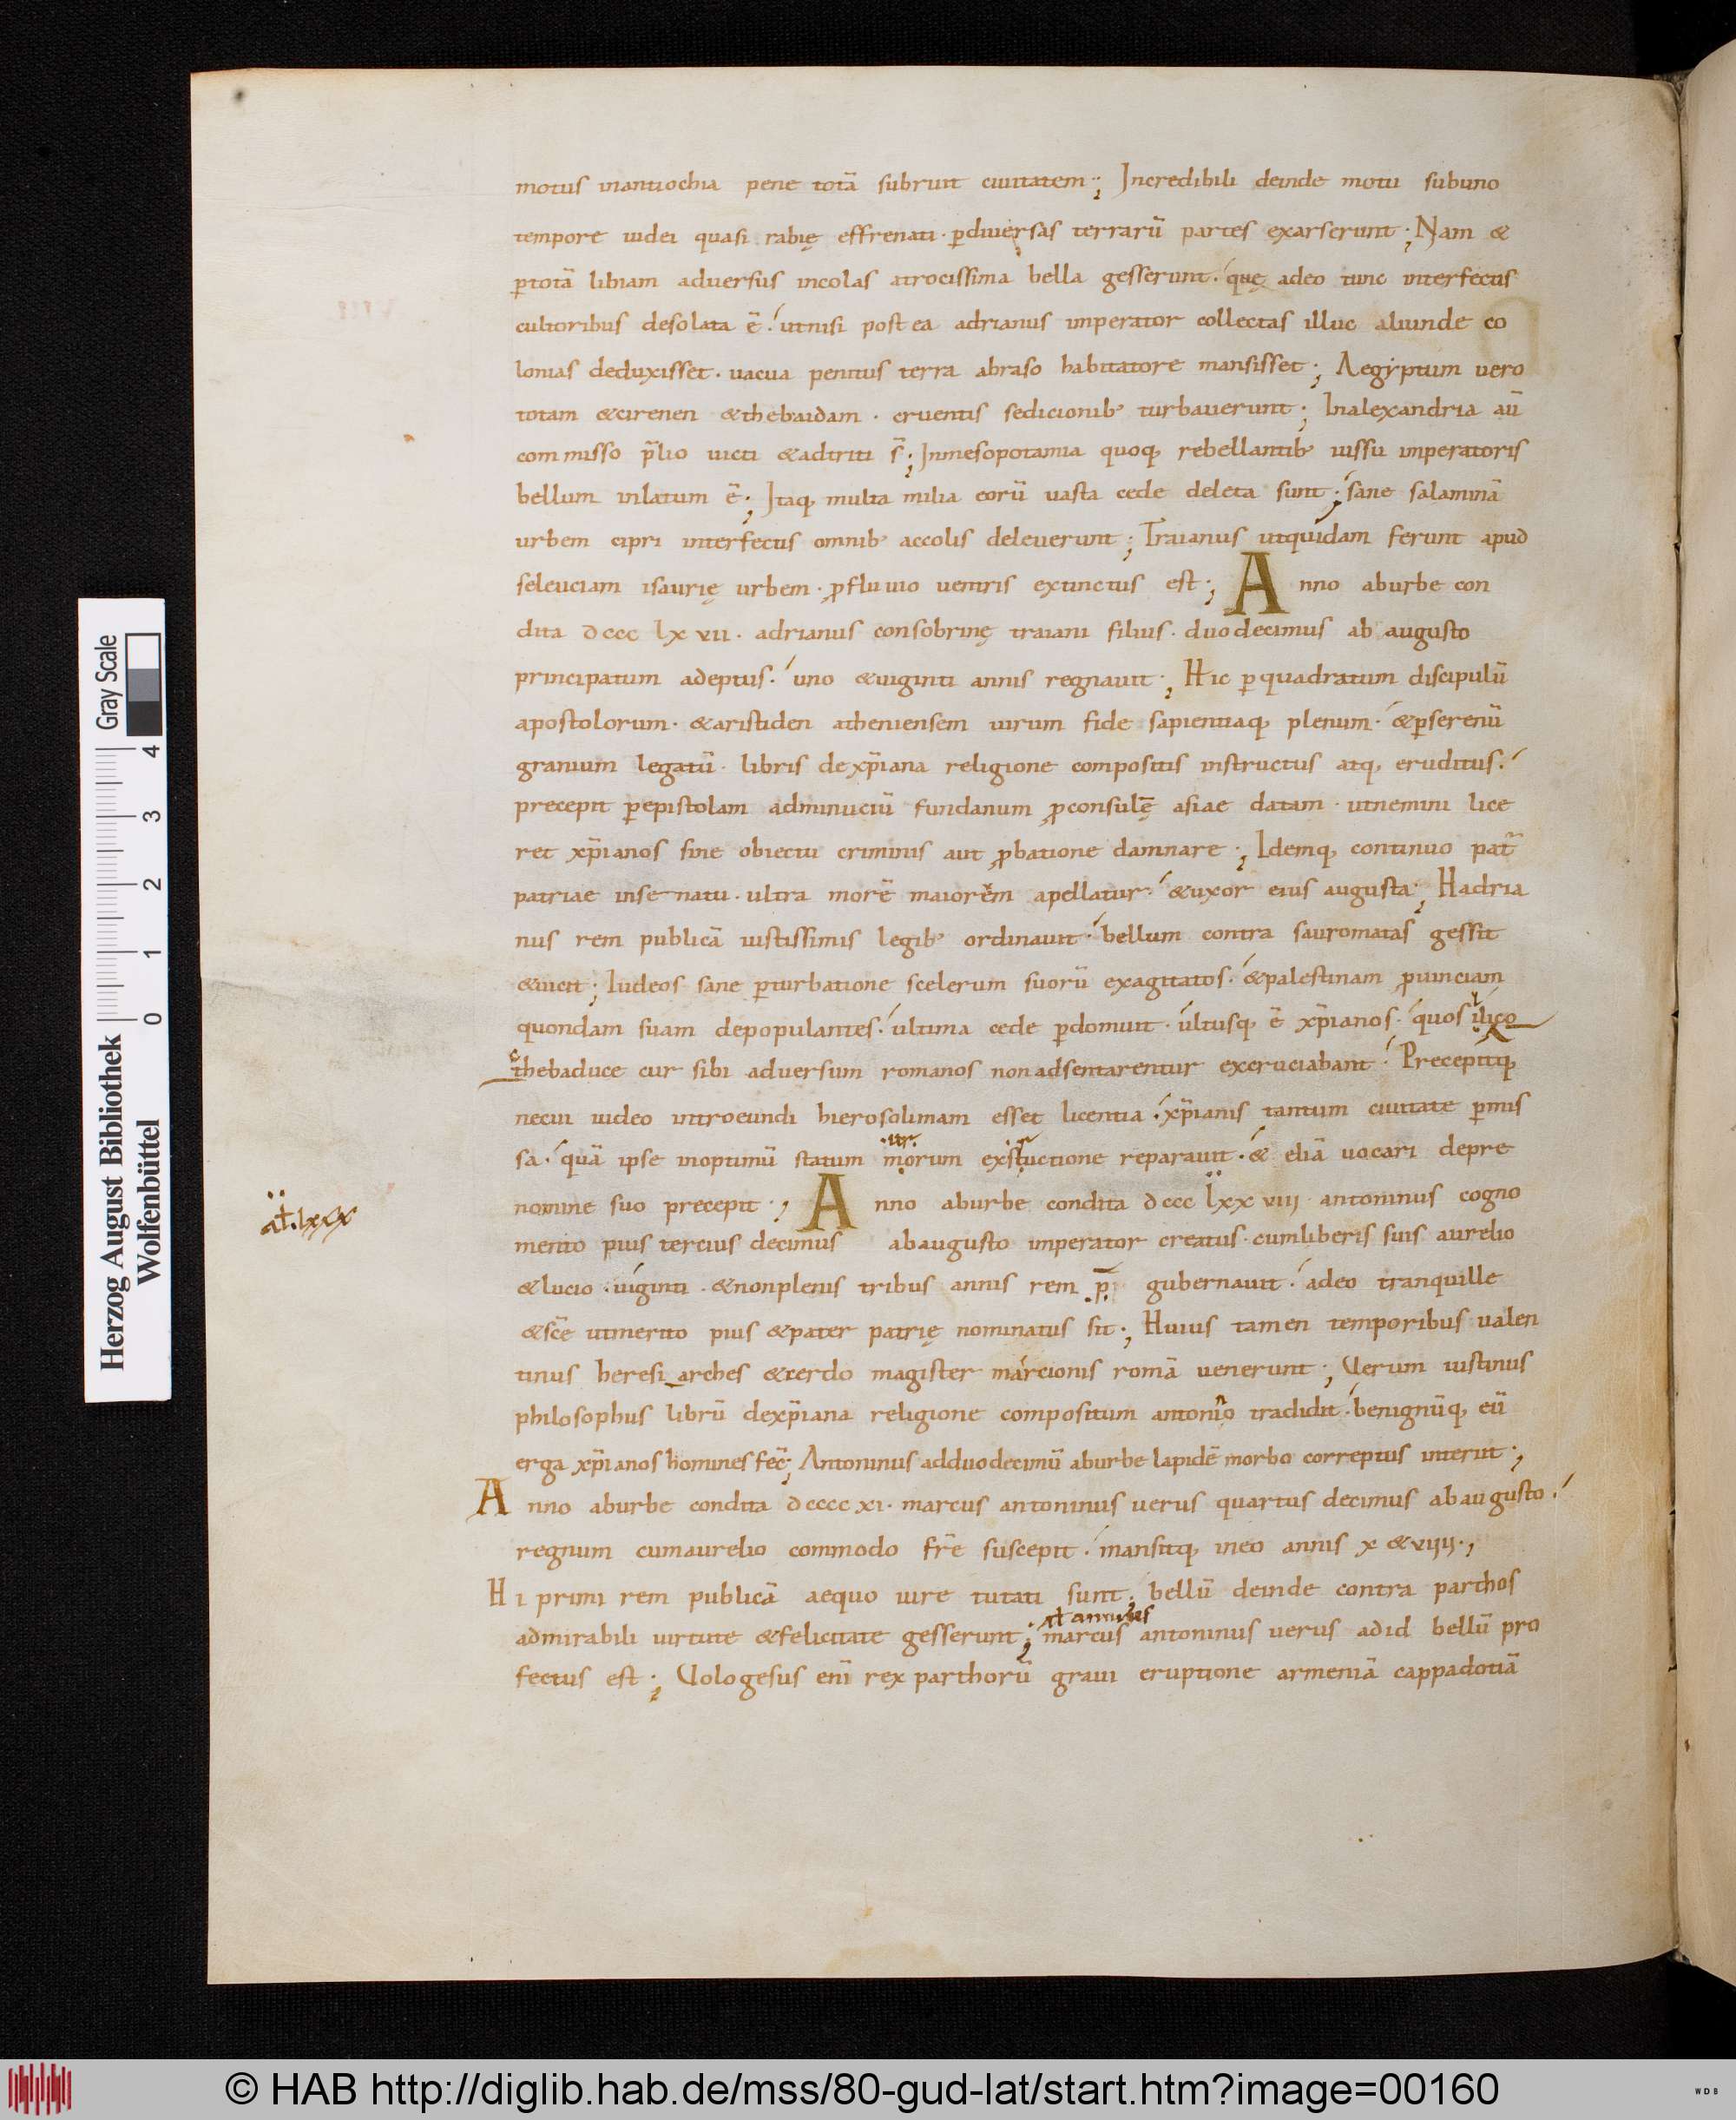 motus inantiochia pene totā subruit ciuitatem; Incredibili deinde motu subuno
tempore iudei quasi rabię effrenati· ꝑdiuersas terrarū partes exarserunt; Nam &
ꝑtotā libiam aduersus incolas atrocissima bella gesserunt· quę adeo tunc interfectis
cultoribus desolata ē· utnisi post ea adrianus imperator collectas illuc aliunde co
lonias deduxisset· uacua penitus terra abraso habitatore mansisset; Aegyptum uero
totam &cirenen &thebaidam· cruentis sedicionib; turbauerunt; Inalexandria aū
commisso p̄lio uicti &adtriti s̄; Inmesopotamia quoq; rebellantib; iussu imperatoris
bellum inlatum ē; Itaq; multa milia eorū uasta cede deleta sunt; sane salaminā
urbem cipri interfectis omnib; accolis deleuerunt; Traianus utquidam ferunt apud
seleuciam isaurię urbem· ꝓfluuio uentris extinctus est; Anno aburbe con
dita dccc lx vii· adrianus consobrinę traiani filius· duodecimus ab augusto
principatum adeptus· uno &uiginti annis regnauit; Hic ꝑ quadratum discipulū
apostolorum· &aristiden atheniensem uirum fide sapientiaq; plenum· &ꝑserenū
granium legatū· libris dexp̄iana religione compositis instructus atq; eruditus·
precepit ꝑepistolam adminuciū fundanum ꝓconsulē asiae datam· utnemini lice
ret xp̄ianos sine obiectu criminis aut ꝓbatione damnare; Idemq; continuo pat̄
patriae insenatu· ultra morē maiorem apellatur· &uxor eius augusta; Hadria
nus rem publicā iustissimis legib; ordinauit· bellum contra sauromatas gessit
&uicit; Iudeos sane ꝑturbatione scelerum suorū exagitatos· &palestinam ꝓuinciam
quondam suam depopulantes· ultima cede ꝑdomuit· ultusq; ē xp̄ianos· quos ilico
thebaduce cur sibi aduersum romanos nonadsentarentur excruciabant· Precepitq;
necui iudeo introeundi hierosolimam esset licentia· xp̄ianis tantum ciuitate ꝑmis
sa· quā ipse inoptimū statum morum exstuctione reparauit· & eliā uocari depre
nomine suo precepit; Anno aburbe condita dccc lxx viii· antoninus cogno
mento pius tercius decimus abaugusto imperator creatus· cumliberis suis aurelio
&lucio· uiginti· &nonplenis tribus annis rem p̄ gubernauit· adeo tranquille
&sc̄e utmerito pius &pater patrię nominatus sit; Huius tamen temporibus ualen
tinus heresi arches &cerdo magister marcionis romā uenerunt; Uerum iustinus
philosophus librū dexp̄iana religione compositum antonino tradidit· benignūq; eū
erga xp̄ianos homines fec̄; Antoninus adduodecimū aburbe lapidē morbo correptus interiit;
Anno aburbe condita dcccc xi· marcus antoninus uerus quartus decimus abaugusto·
regnum cumaurelio commodo fr̄e suscepit· mansitq; ineo annis x &viiii·,
Hi primi rem publicā aequo iure tutati sunt; bellū deinde contra parthos
at annius
admirabili uirtute &felicitate gesserunt; marcus antoninus uerus adid bellū pro
fectus est; Uologesus enī rex parthorū graui eruptione armeniā cappadotiā
at· lxxx
Herzog August Bibliothek
Wolfenbüttel
0 1 2 3 4
Gray Scale
© HAB http://diglib.hab.de/mss/80-gud-lat/start.htm?image=00160
WDB